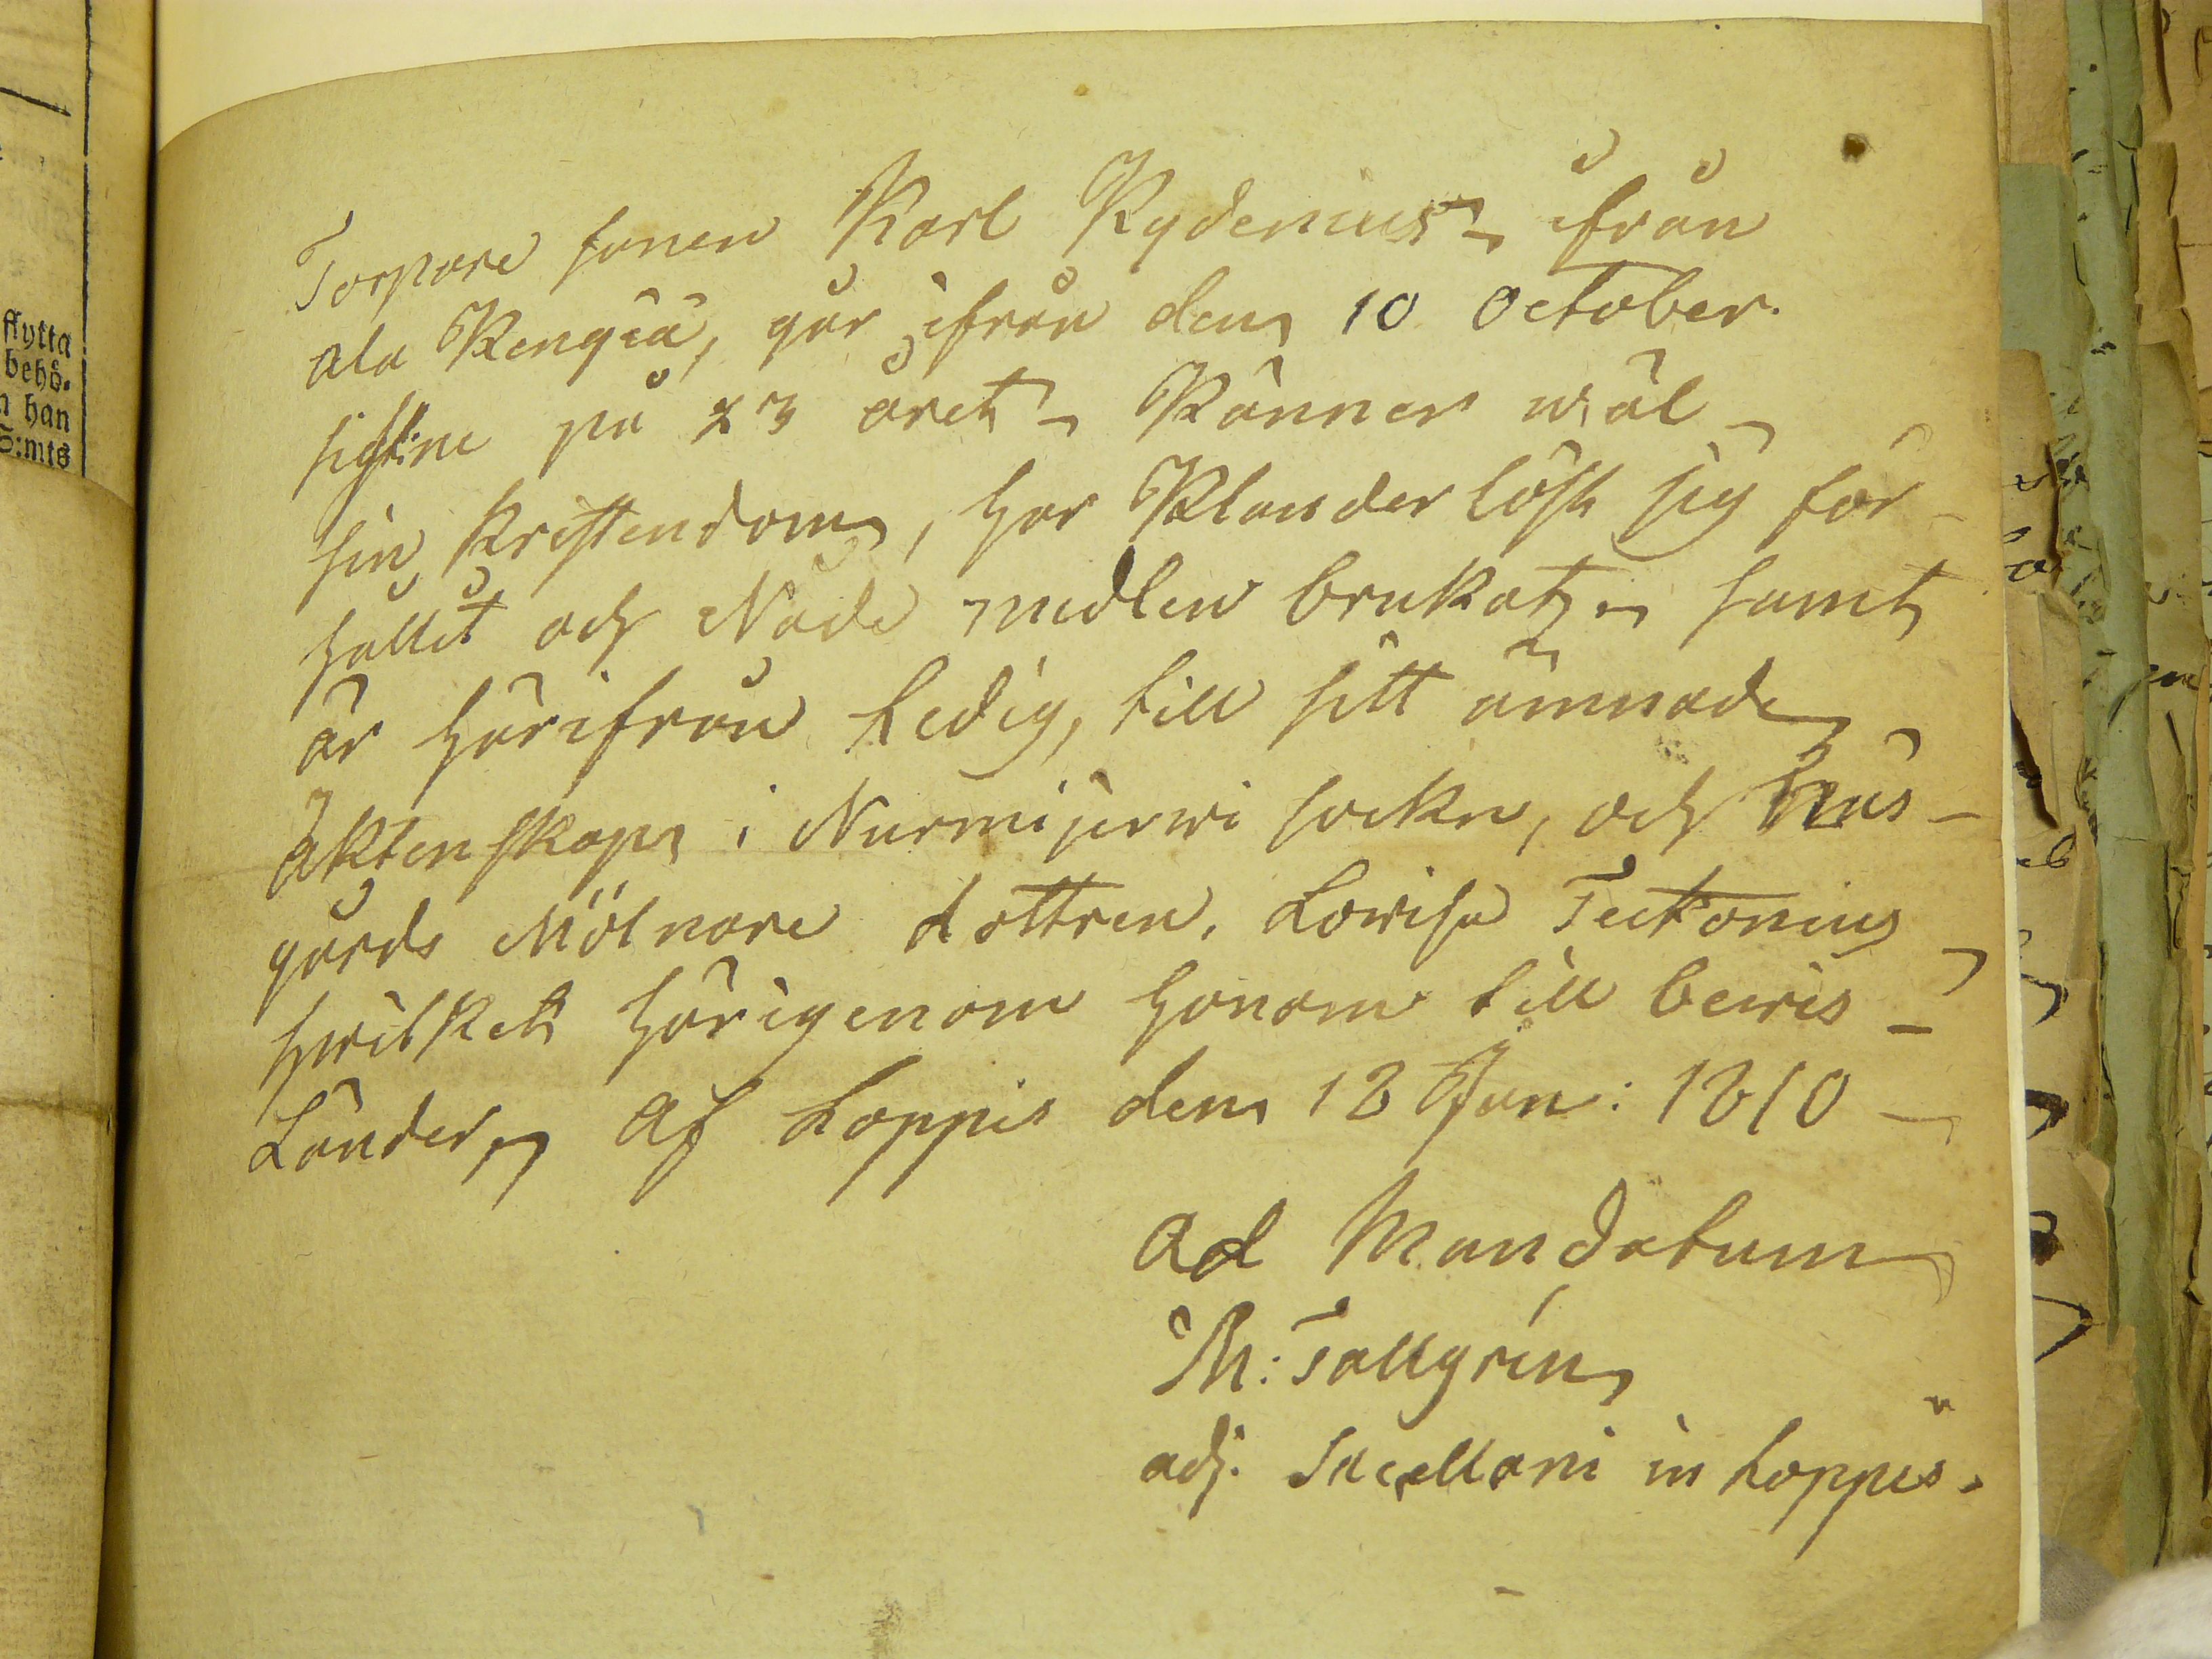 flytta
behö-
n han
S:mts
Torpare sonen Karl Rydenius ifrån
ala Rengiä, går ifrån den 10 October
sistne på 23 året Känner wäl
sin kristendom, har Klanderlöst sig för-
hållit och Nåde medlen brukat samt
är härifrån Ledig, till sitt ämnade
äktenskap i Nurmijerwi sockn, och Nus-
gårds Mölnare dottren, Lowisa Tectonius
hwilket härigenom honom till bewis
Länder, af Loppis den 18 Jun: 1810
ad Mandatum
M: Tallgrén
adj. Sacellani in Loppis.